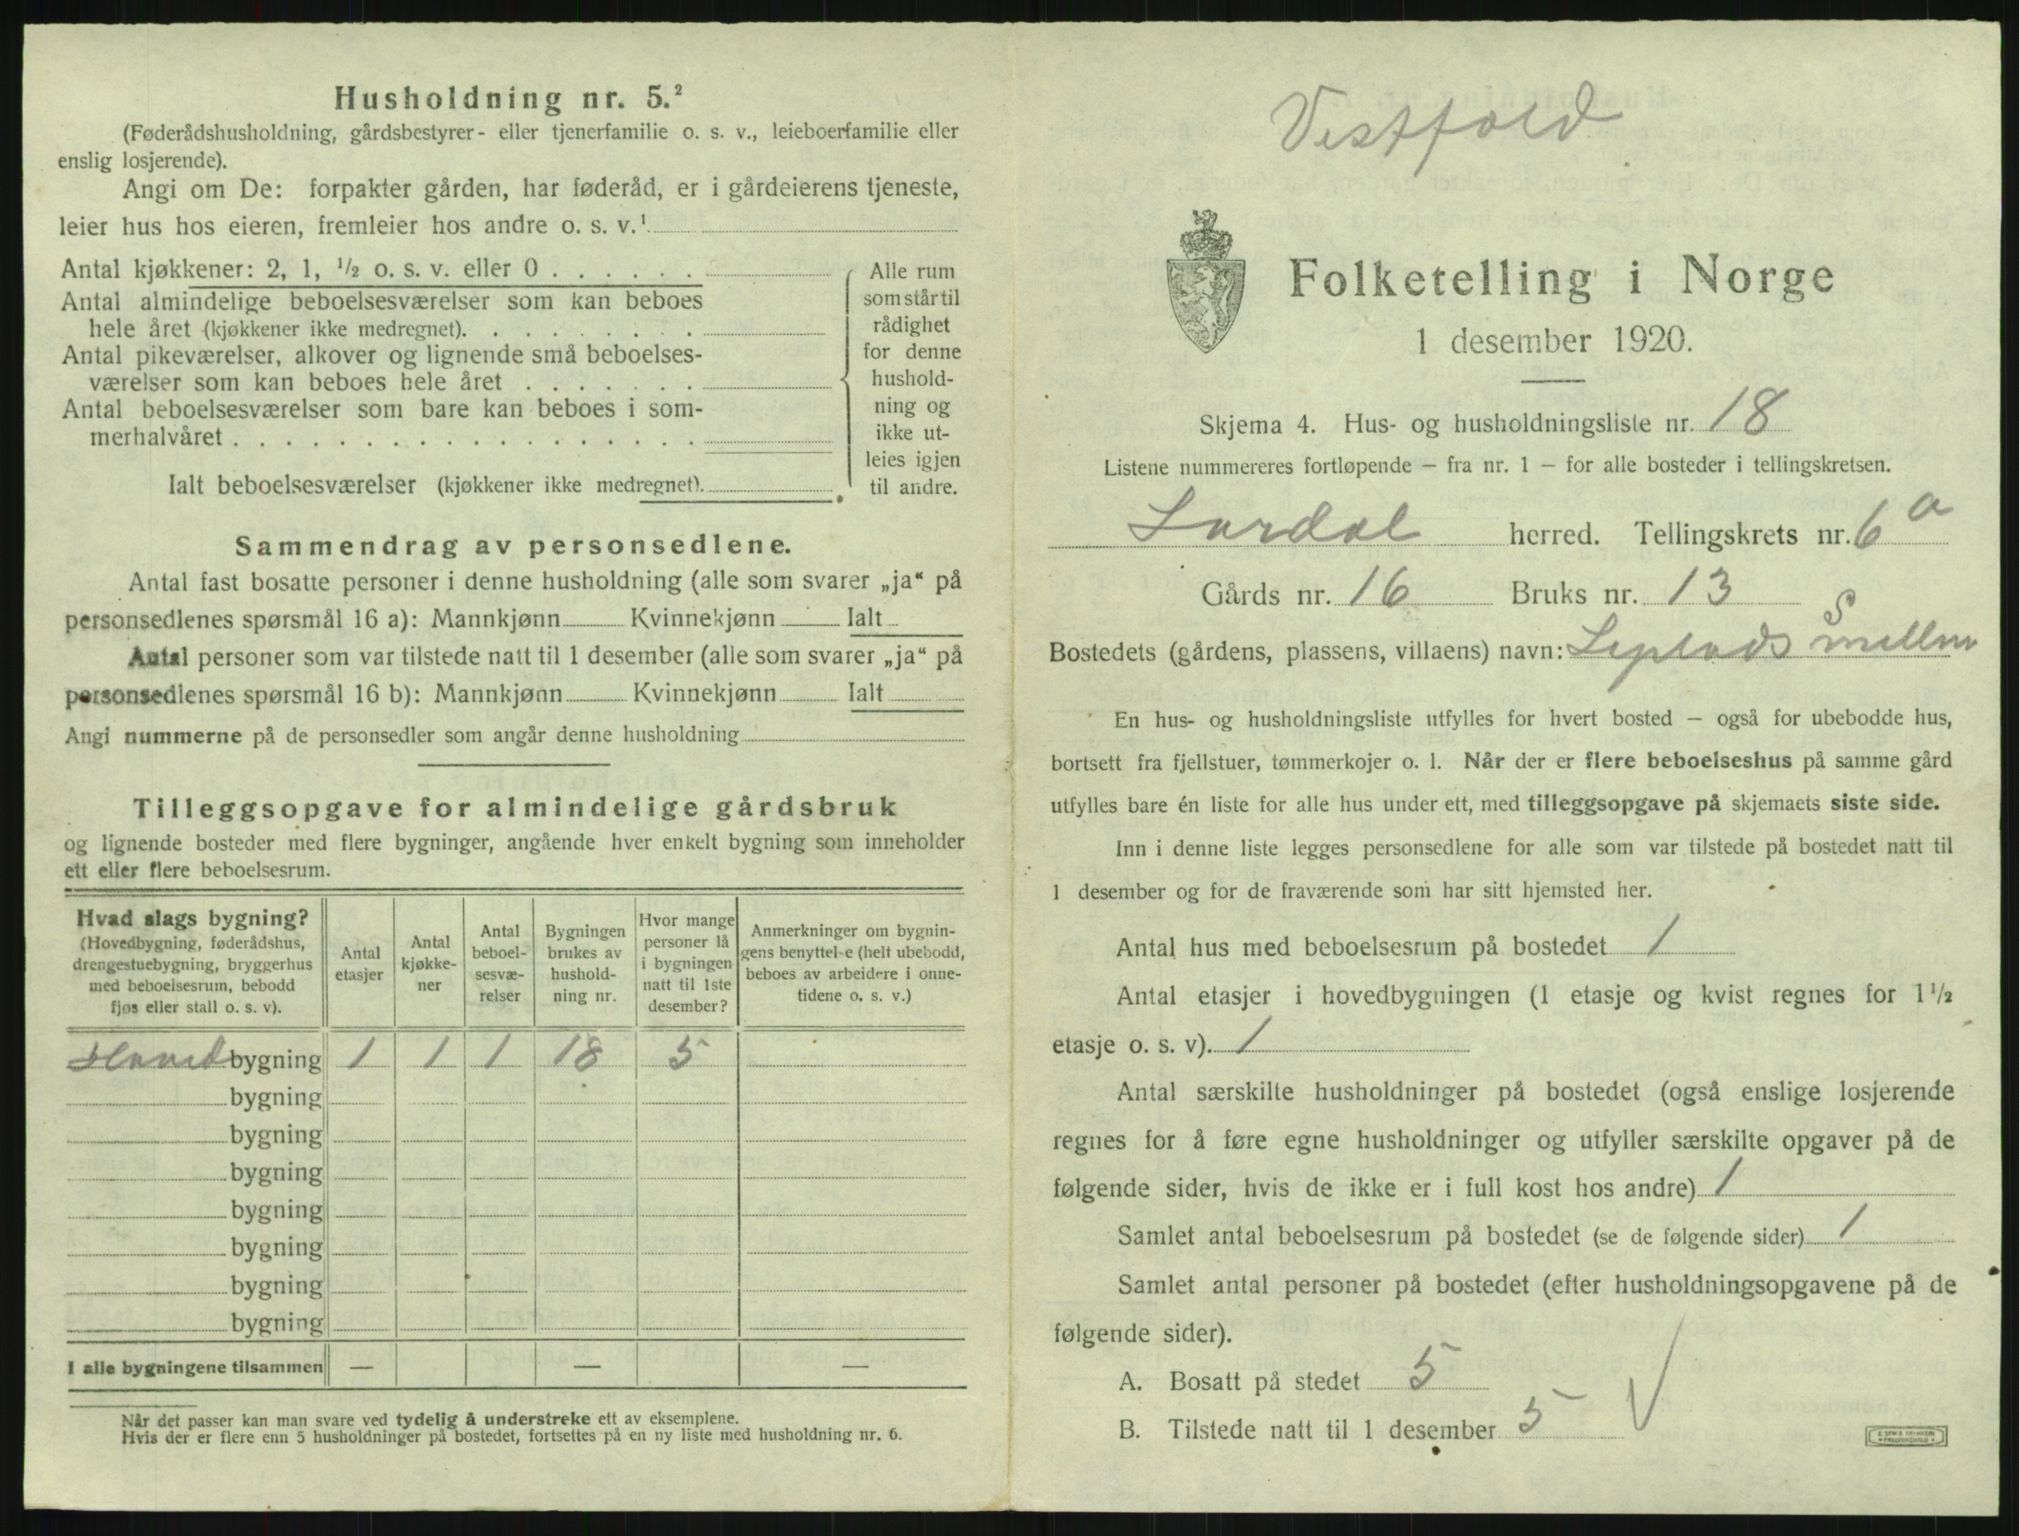 Husholdning nr. 5.²
(Føderådshusholdning, gårdsbestyrer- eller tjenerfamilie o. s. v., leieboerfamilie eller
enslig losjerende).
Angi om De: forpakter gården, har føderåd, er i gårdeierens tjeneste,
leier hus hos eieren, fremleier hos andre o. s. v.¹
Antal kjøkkener: 2, 1, ½ o. s. v. eller 0
Antal almindelige beboelsesværelser som kan beboes
hele året (kjøkkener ikke medregnet).
Antal pikeværelser, alkover og lignende små beboelses-
værelser som kan beboes hele året
Antal beboelsesværelser som bare kan beboes i som-
merhalvåret
Ialt beboelsesværelser (kjøkkener ikke medregnet).
Alle rum
som står til
rådighet
for denne
hushold-
ning og
ikke ut-
leies igjen
til andre.
Sammendrag av personsedlene.
Antal fast bosatte personer i denne husholdning (alle som svarer „ja“ på
personsedlenes spørsmål 16 a): Mannkjønn Kvinnekjønn Ialt
Antal personer som var tilstede natt til 1 desember (alle som svarer „ja“ på
personsedlenes spørsmål 16 b): Mannkjønn Kvinnekjønn Ialt
Angi nummerne på de personsedler som angår denne husholdning
Tilleggsopgave for almindelige gårdsbruk
og lignende bosteder med flere bygninger, angående hver enkelt bygning som inneholder
ett eller flere beboelsesrum.
Hvad slags bygning?
(Hovedbygning, føderådshus,
drengestuebygning, bryggerhus
med beboelsesrum, bebodd
fjøs eller stall o. s. v).
Antal
etasjer
Antal
kjøkke-
ner
Antal
beboel-
sesvæ-
relser
Bygningen
brukes av
hushold-
ning nr.
Hvor mange
personer lå
i bygningen
natt til 1ste
desember?
Anmerkninger om bygnin-
gens benyttelse (helt ubebodd,
beboes av arbeidere i onne-
tidene o. s. v.)
Hovedbygning 1 1 1 18 5
bygning
bygning
bygning
bygning
bygning
bygning
bygning
I alle bygningene tilsammen — — —
Når det passer kan man svare ved tydelig å understreke ett av eksemplene.
Hvis der er flere enn 5 husholdninger på bostedet, fortsettes på en ny liste med husholdning nr. 6.
Vestfold
Folketelling i Norge
1 desember 1920.
Skjema 4. Hus- og husholdningsliste nr. 18
Listene nummereres fortløpende – fra nr. 1 – for alle bosteder i tellingskretsen.
Lardal herred. Tellingskrets nr. 6 a
Gårds nr. 16 Bruks nr. 13
Bostedets (gårdens, plassens, villaens) navn:
En hus- og husholdningsliste utfylles for hvert bosted – også for ubebodde hus,
bortsett fra fjellstuer, tømmerkojer o. l. Når der er flere beboelseshus på samme gård
utfylles bare én liste for alle hus under ett, med tilleggsopgave på skjemaets siste side.
Inn i denne liste legges personsedlene for alle som var tilstede på bostedet natt til
1 desember og for de fraværende som har sitt hjemsted her.
Antal hus med beboelsesrum på bostedet 1
Antal etasjer i hovedbygningen (1 etasje og kvist regnes for 1½
etasje o. s. v). 1
Antal særskilte husholdninger på bostedet (også enslige losjerende
regnes for å føre egne husholdninger og utfyller særskilte opgaver på de
følgende sider, hvis de ikke er i full kost hos andre) 1
Samlet antal beboelsesrum på bostedet (se de følgende sider) 1
Samlet antal personer på bostedet (efter husholdningsopgavene på de
følgende sider).
A. Bosatt på stedet 5
B. Tilstede natt til 1 desember 5